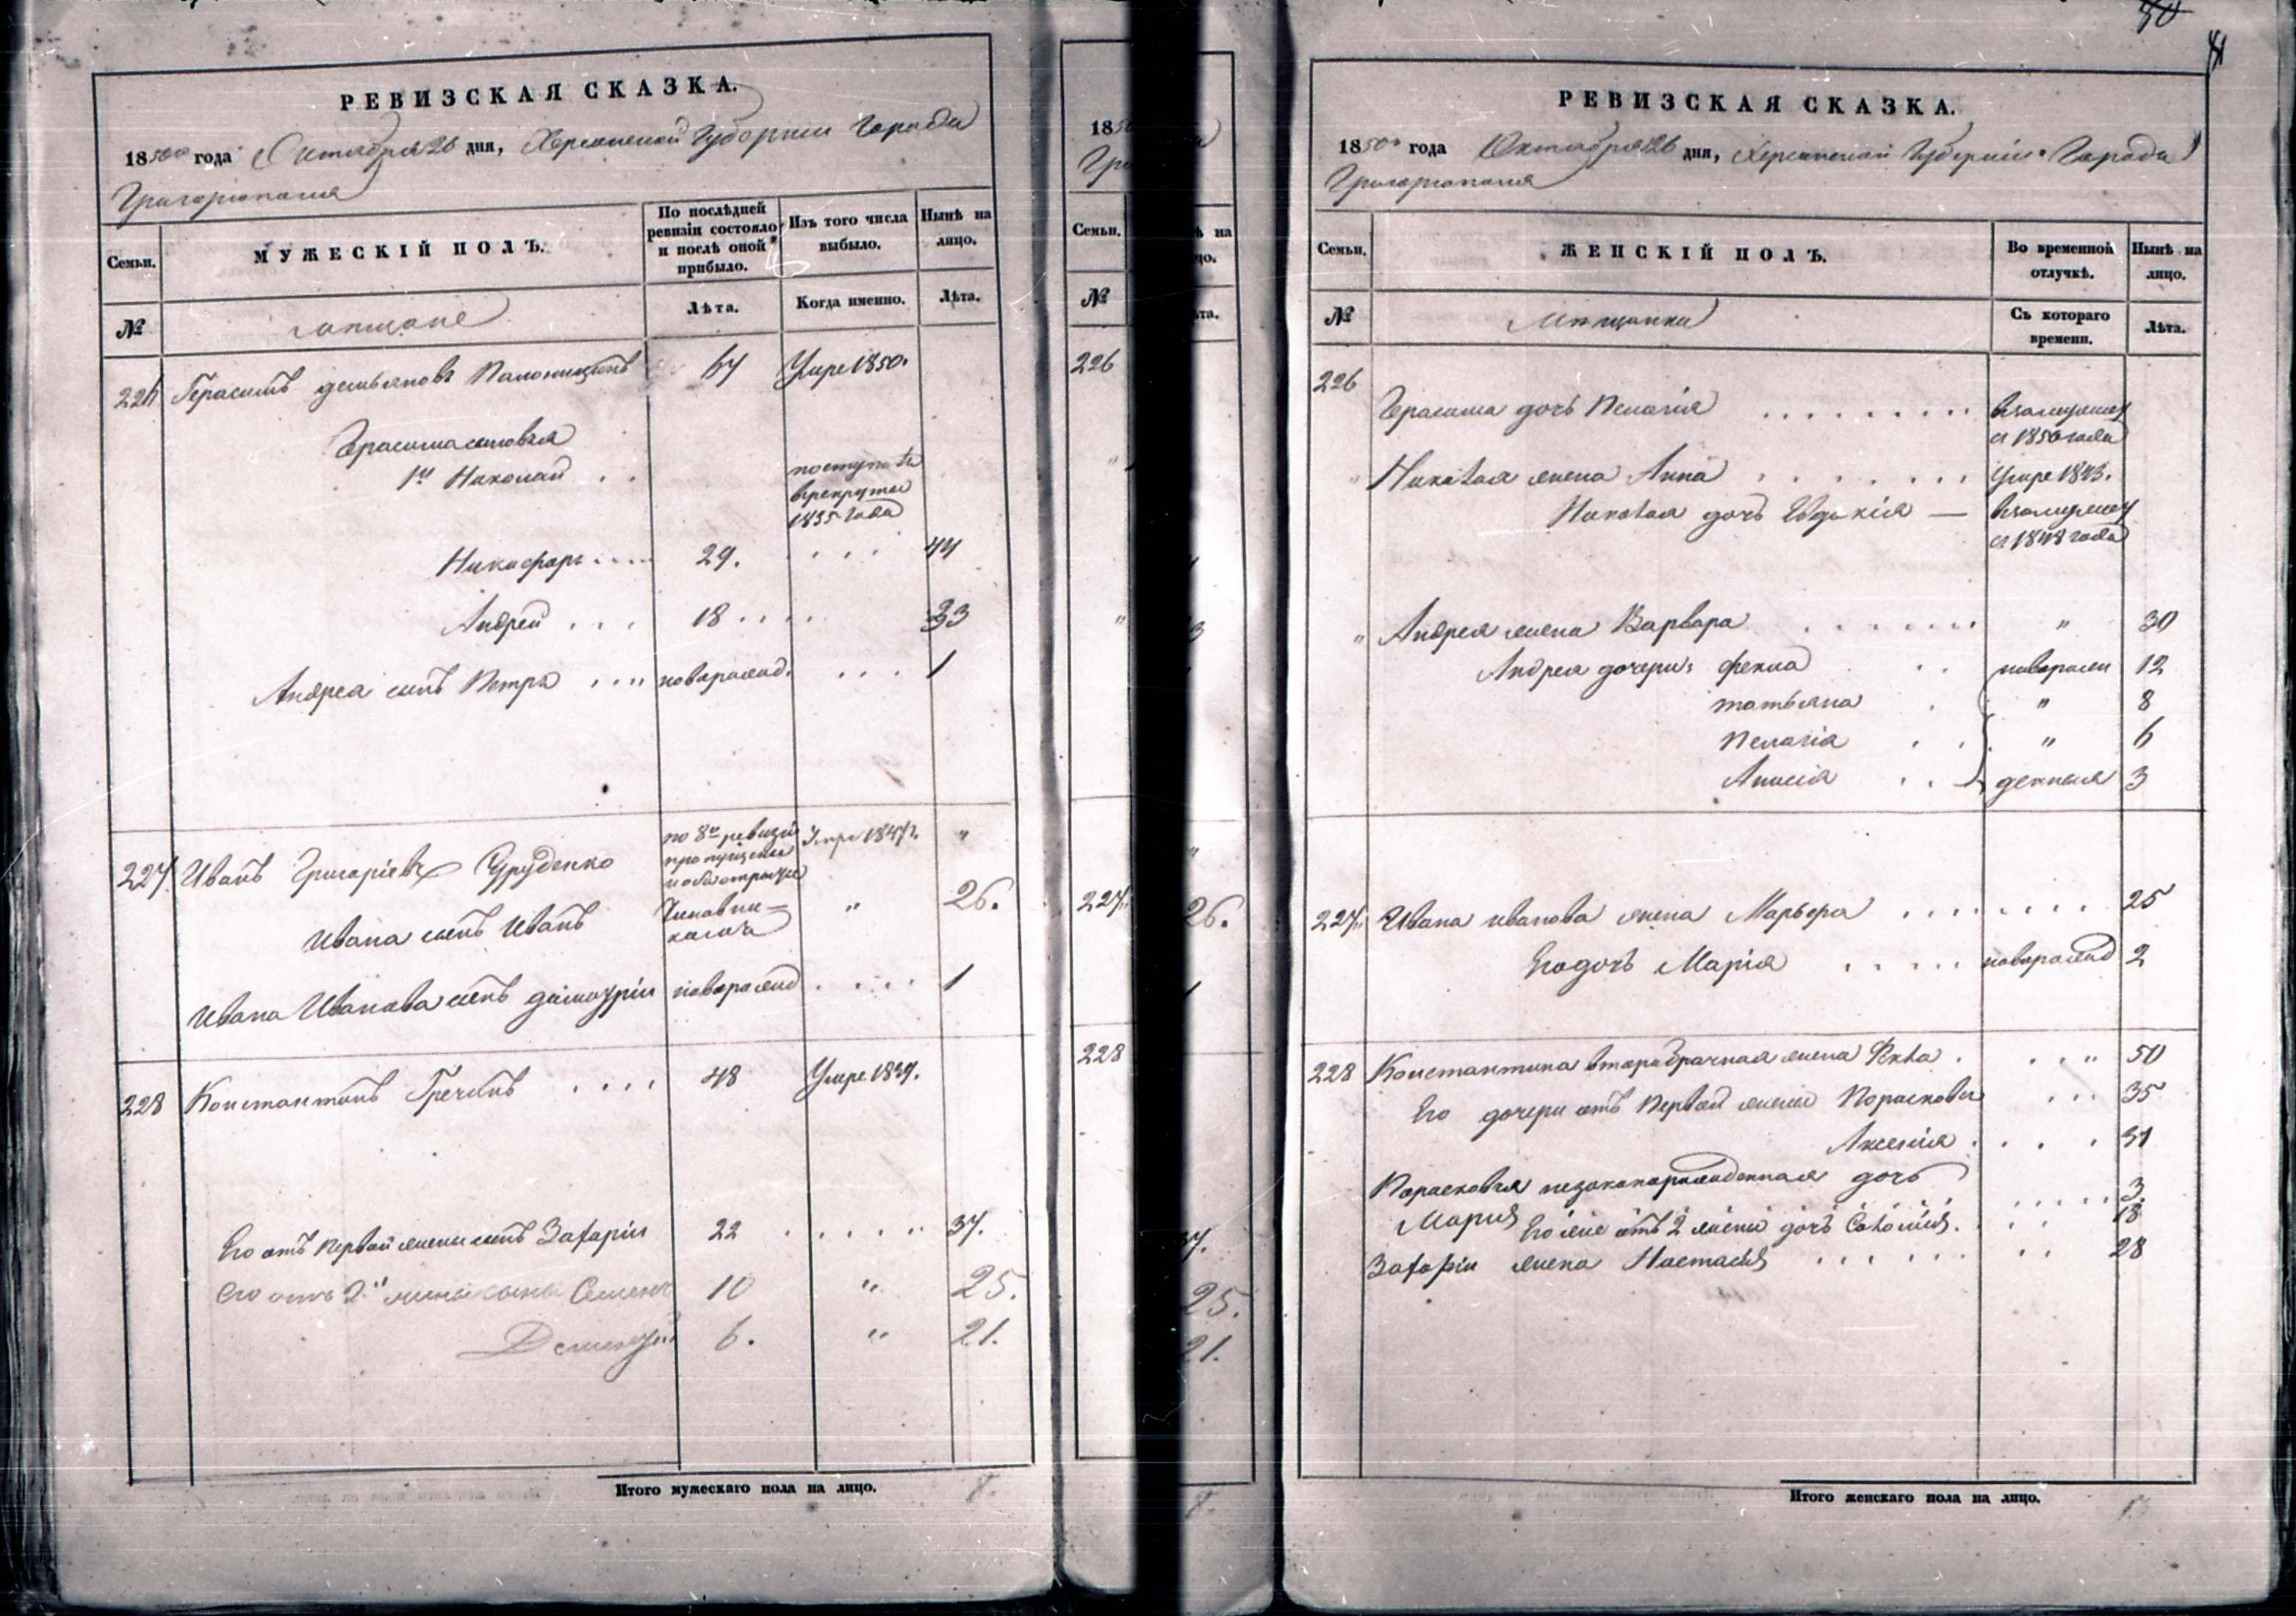 РЕВИЗСКАЯ СКАЗКА.
1850го года Октября 26 дня, Херсонской Губернии Города
Григориополя
Семьи. МУЖЕСКІЙ ПОЛЪ. По послѣдней ревизіи состояло и послѣ оной прибыло. Изъ того числа выбыло. Нынѣ на лицо.
№ мещане Лѣта. Когда именно. Лѣта.
226 Герасимъ демьяновъ 67 Умре 1850.
Герасима сыновья
1й Николай . . поступилъ
в рекруты
1835 года
Никифоръ .... 29. . . . . 44
Андрей . . . 18 . . . . 33
Андрея сынъ Петръ .... новорожд. . . . . 1
227. Иванъ Григоріевъ по 8й ревизіи Умре 1847г. "
пропущены
Ивана сынъ Иванъ " 26.
Ивана Иванова сынъ димитрій новорожд . . . . 1
228 Константинъ Гречинъ . . . . 48 Умре 1839.
Его отъ первой жены сынъ Захарій 22 . . . . . 37.
его отъ 2й жены сыны Семенъ 10 " 25.
6. " 21.
Итого мужескаго пола на лицо. 8.
18
Гри
Семьи.
№
226
227.
228
ѣ на
цо.
та.
26.
25.
21.
30
РЕВИЗСКАЯ СКАЗКА.
1850го года Октября 26 дня, Херсонской Губерніи Города
Григориополя
Семьи. ЖЕНСКІЙ ПОЛЪ. Во временной отлучкѣ. Нынѣ на лицо.
№ Мещанки Съ котораго времени. Лѣта.
226
Герасима дочь Пелагія . . . . . . . . . взамужеству
с 1850 года
" Николая жена Анна . . . . . . . Умре 1843.
Николая дочь Евдокія — взамужеству
с 1848 года
" Андрея жена Варвара . . . . . . . " 30
Андрея дочери: фекла . . новорожд 12
татьяна . " 8
Пелагія . . " 6
Анисія . . 3
227. Ивана иванова жена Марфа . . . . . . . . 25
Его дочь Марія . . . . . новорожд 2
228 Константина второбрачная жена . . . " 50
Его дочери отъ первой жены Порасковья . . . 35
Аксенія . . . . 31
Порасковья незаконорожденная дочь
Марія . . . . . 3.
Его же отъ 2 жены дочь Соломія . . . 18
Захарія жена Настасія . . . . . . . . 28
Итого женскаго пола на лицо.